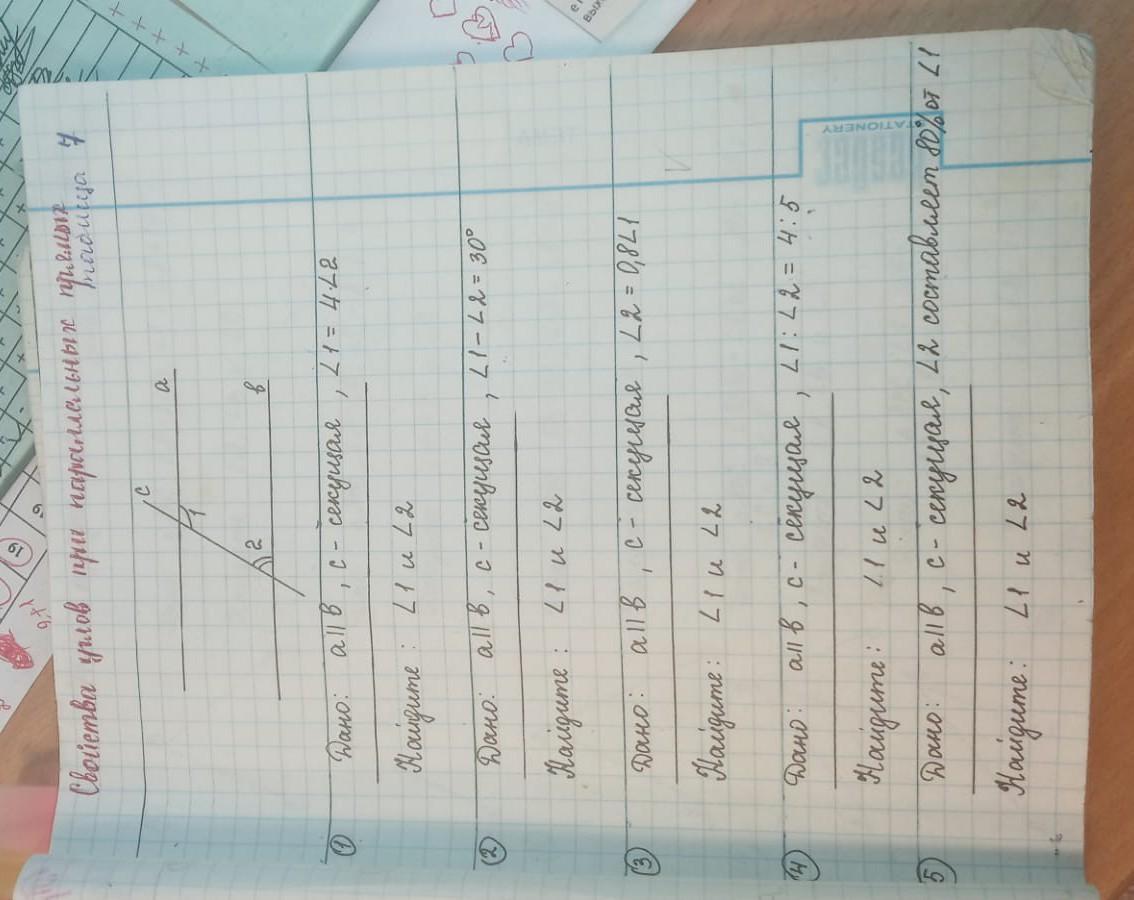 Свойства углов при параллельных прямых
таблица 7
c
a
1
2
в
① Дано: a||в, c - секущая, ∠1 = 4∠2
Найдите: ∠1 и ∠2
② Дано: a||в, c - секущая, ∠1 - ∠2 = 30°
Найдите: ∠1 и ∠2
③ Дано: a||в, c - секущая, ∠2 = 0,8∠1
Найдите: ∠1 и ∠2
④ Дано: a||в, c - секущая, ∠1 : ∠2 = 4:5
Найдите: ∠1 и ∠2
⑤ Дано: a||в, c - секущая, ∠2 составляет 80% от ∠1
Найдите: ∠1 и ∠2
STATIONERY
19